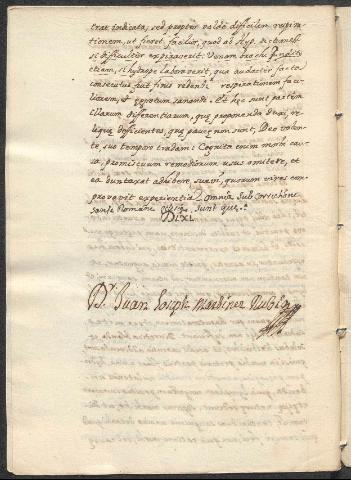 trat indicata, sed propter valde difficilem respira-
tionem, ut fieret facilior, quod ad Hyp.
si difficulter expiraverit. Venam brachij
etiam, si hydrope laboraverit, que audacter facta
consecutus fuit finis reddendi respirationem faci-
liorem, et egrotum sanandi. Et hec sunt
illarum differentiarum, que proponenda duxi, re-
lique differentias, que pauce non sunt, Deo volen-
te, suo tempore tradam: Cognita enim morbi cau-
sa, promiscuum remediorum usus omittere, et
ea duntaxat adhibere, suevi, quorum vires com-
provavit experientia. Omnia sub correctione
sancte Romane Ecclesie sunt que
Dixi.
D.r Juan Joseph Martinez Rubio